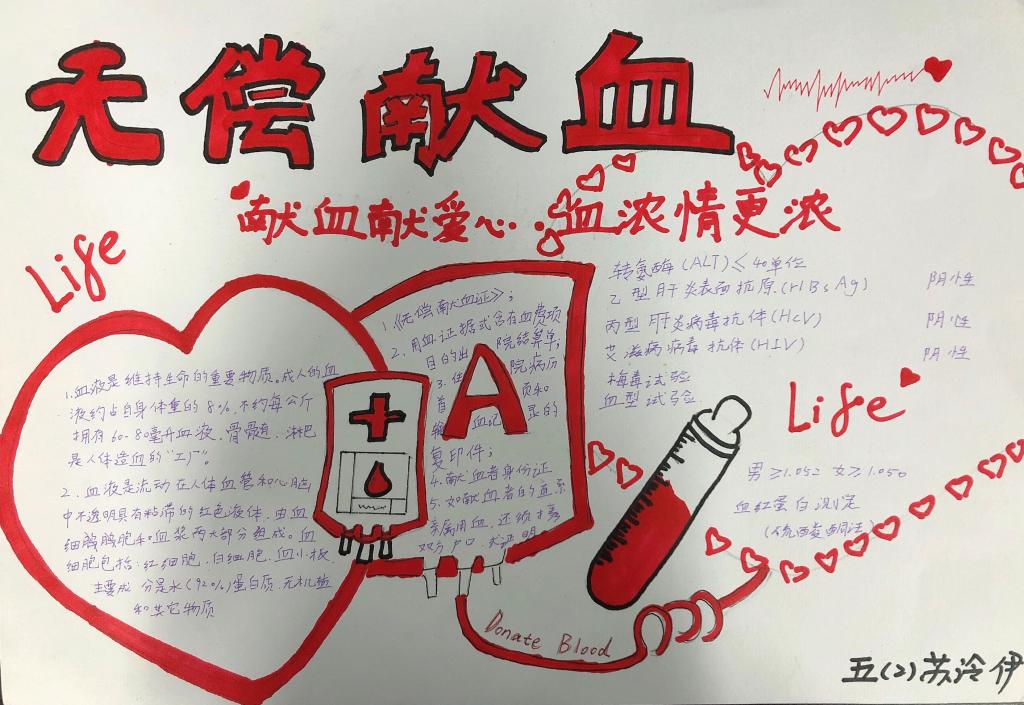 无偿献血
献血献爱心..血浓情更浓
Life
1.血液是维持生命的重要物质。成人的血
液约占自身体重的8%,不约每公斤
拥有60-80毫升血液.骨髓.淋巴
是人体造血的"工厂"。
2.血液是流动在人体血管和心脏
中不透明具有粘滞的红色液体.由血
细胞和血浆两大部分组成。血
细胞包括:红细胞.白细胞.血小板
主要成分是水(92%)蛋白质.无机盐
和其它物质
1.《无偿献血证》;
2.用血证据或含有血费项
目的出院结算单;
3.住院病历
首页和
输血记录的
复印件;
4.献血者身份证
5.如献血者的直系
亲属用血,还须
双方户口
A
Donate Blood
转氨酶(ALT)≤40单位
乙型肝炎表面抗原(HBsAg) 阴性
丙型肝炎病毒抗体(HCV) 阴性
艾滋病病毒抗体(HIV) 阴性
梅毒试验
血型试验
Life
男≥1.052 女≥1.050
血红蛋白测定
(硫酸铜法)
五(2)苏泠伊